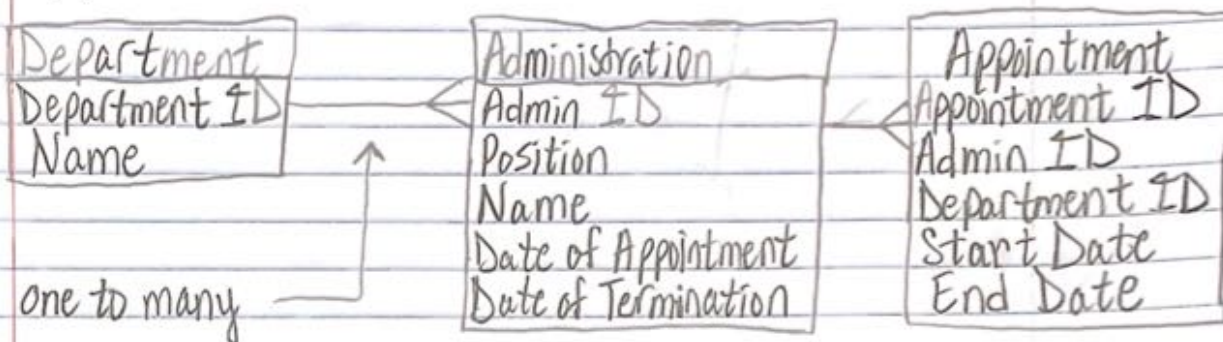 Department
Department ID
Name
one to many
Administration
Admin ID
Position
Name
Date of Appointment
Date of Termination
Appointment
Appointment ID
Admin ID
Department ID
Start Date
End Date